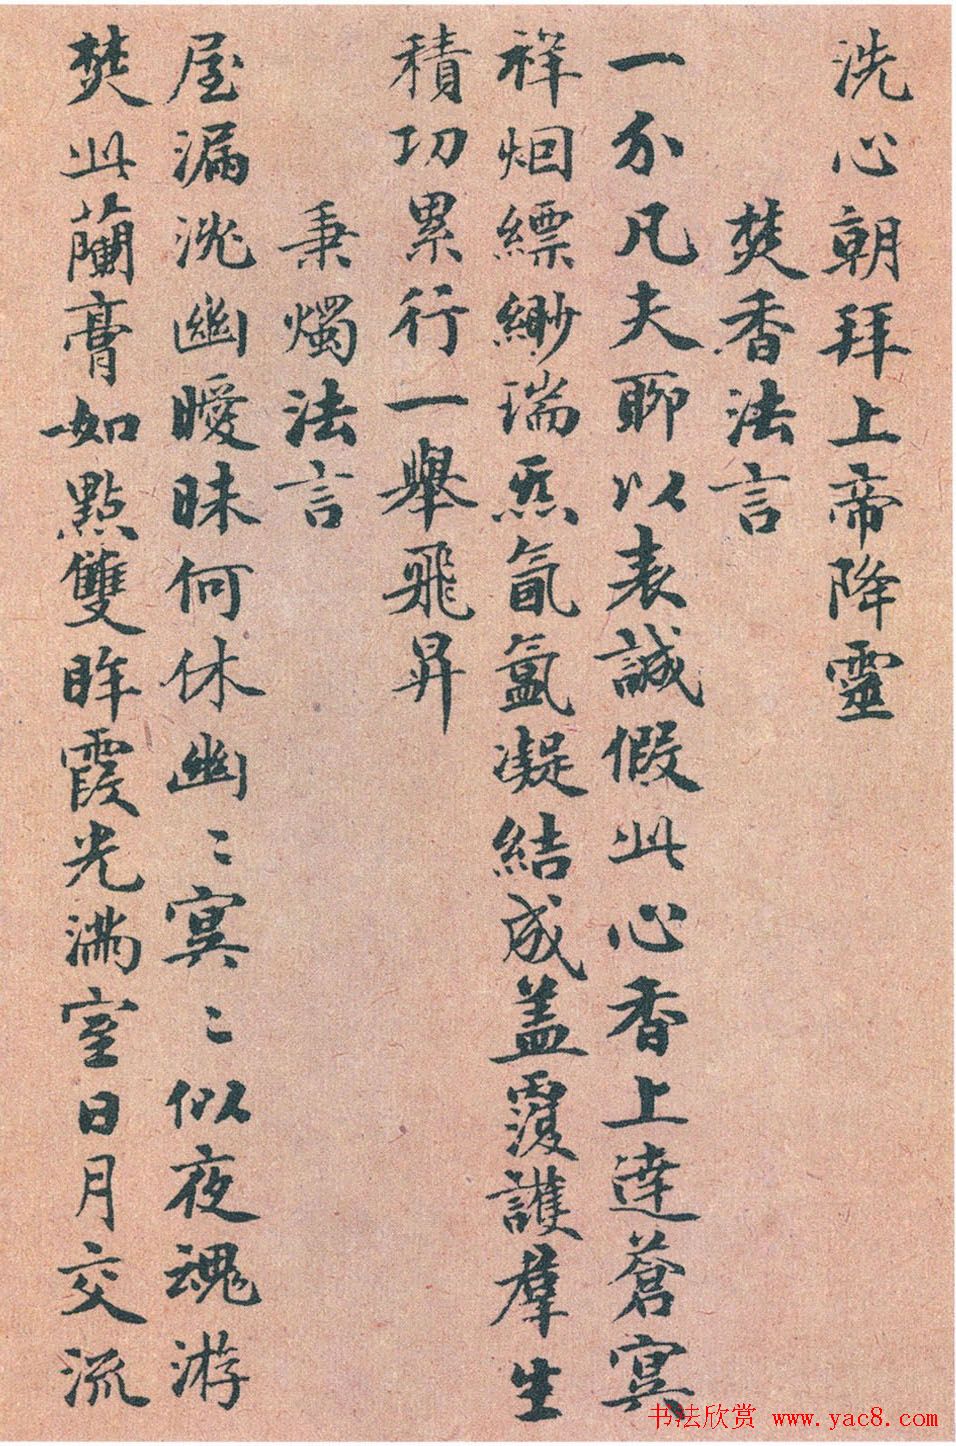 洗心朝拜上帝降靈
焚香法言
一分凡夫聊以表誠假此心香上達蒼冥
祥烟縹緲瑞炁氤氳凝結成盖覆護羣生
積功累行一舉飛昇
秉燭法言
屋漏洸幽曖昧何休幽〻冥〻似夜魂游
焚此蘭膏如點雙眸霞光满室日月交流
书法欣赏 www.yac8.com